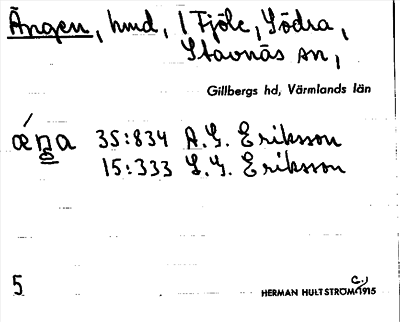 Ängen, hmd, 1 Fjöle, Södra,
Stavnäs sn,
Gillbergs hd, Värmlands län
ǽŋa 35:834 A.G. Eriksson
15:333 L.G. Eriksson
5
HERMAN HULTSTRÖM c.) 1915